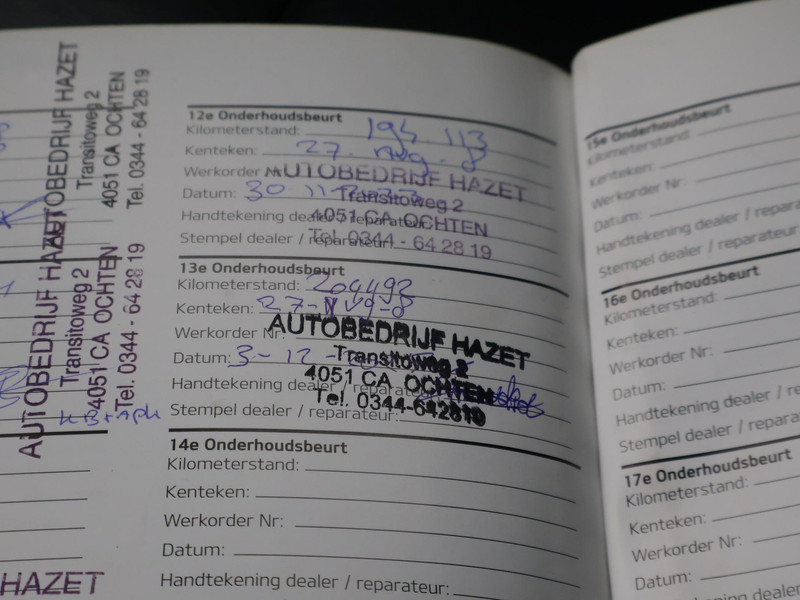 AUTOBEDRIJF HAZET
Transitoweg 2
4051 CA OCHTEN
Tel. 0344 - 64 28 19
AUTOBEDRIJF HAZET
Transitoweg 2
4051 CA OCHTEN
Tel. 0344 - 64 28 19
HAZET
12e Onderhoudsbeurt
Kilometerstand: 194.113
Kenteken: 27
Werkorder
Datum: 30 11
Handtekening dealer / reparateur:
Stempel dealer / reparateur:
AUTOBEDRIJF HAZET
Transitoweg 2
4051 CA OCHTEN
Tel. 0344 - 64 28 19
13e Onderhoudsbeurt
Kilometerstand: 204492
Kenteken: 27
Werkorder Nr:
Datum: 3-12
Handtekening dealer / reparateur
Stempel dealer / reparateur:
AUTOBEDRIJF HAZET
Transitoweg 2
4051 CA OCHTEN
Tel. 0344-642819
14e Onderhoudsbeurt
Kilometerstand:
Kenteken:
Werkorder Nr:
Datum:
Handtekening dealer / reparateur:
15e Onderhoudsbeurt
Kilometerstand:
Kenteken:
Werkorder Nr:
Datum:
Handtekening dealer / repara
Stempel dealer / reparateur:
16e Onderhoudsbeurt
Kilometerstand:
Kenteken:
Werkorder Nr:
Datum:
Handtekening dealer / re
Stempel dealer / repara
17e Onderhoudsbeurt
Kilometerstand:
Kenteken:
Werkorder Nr:
Datum:
ning dealer /